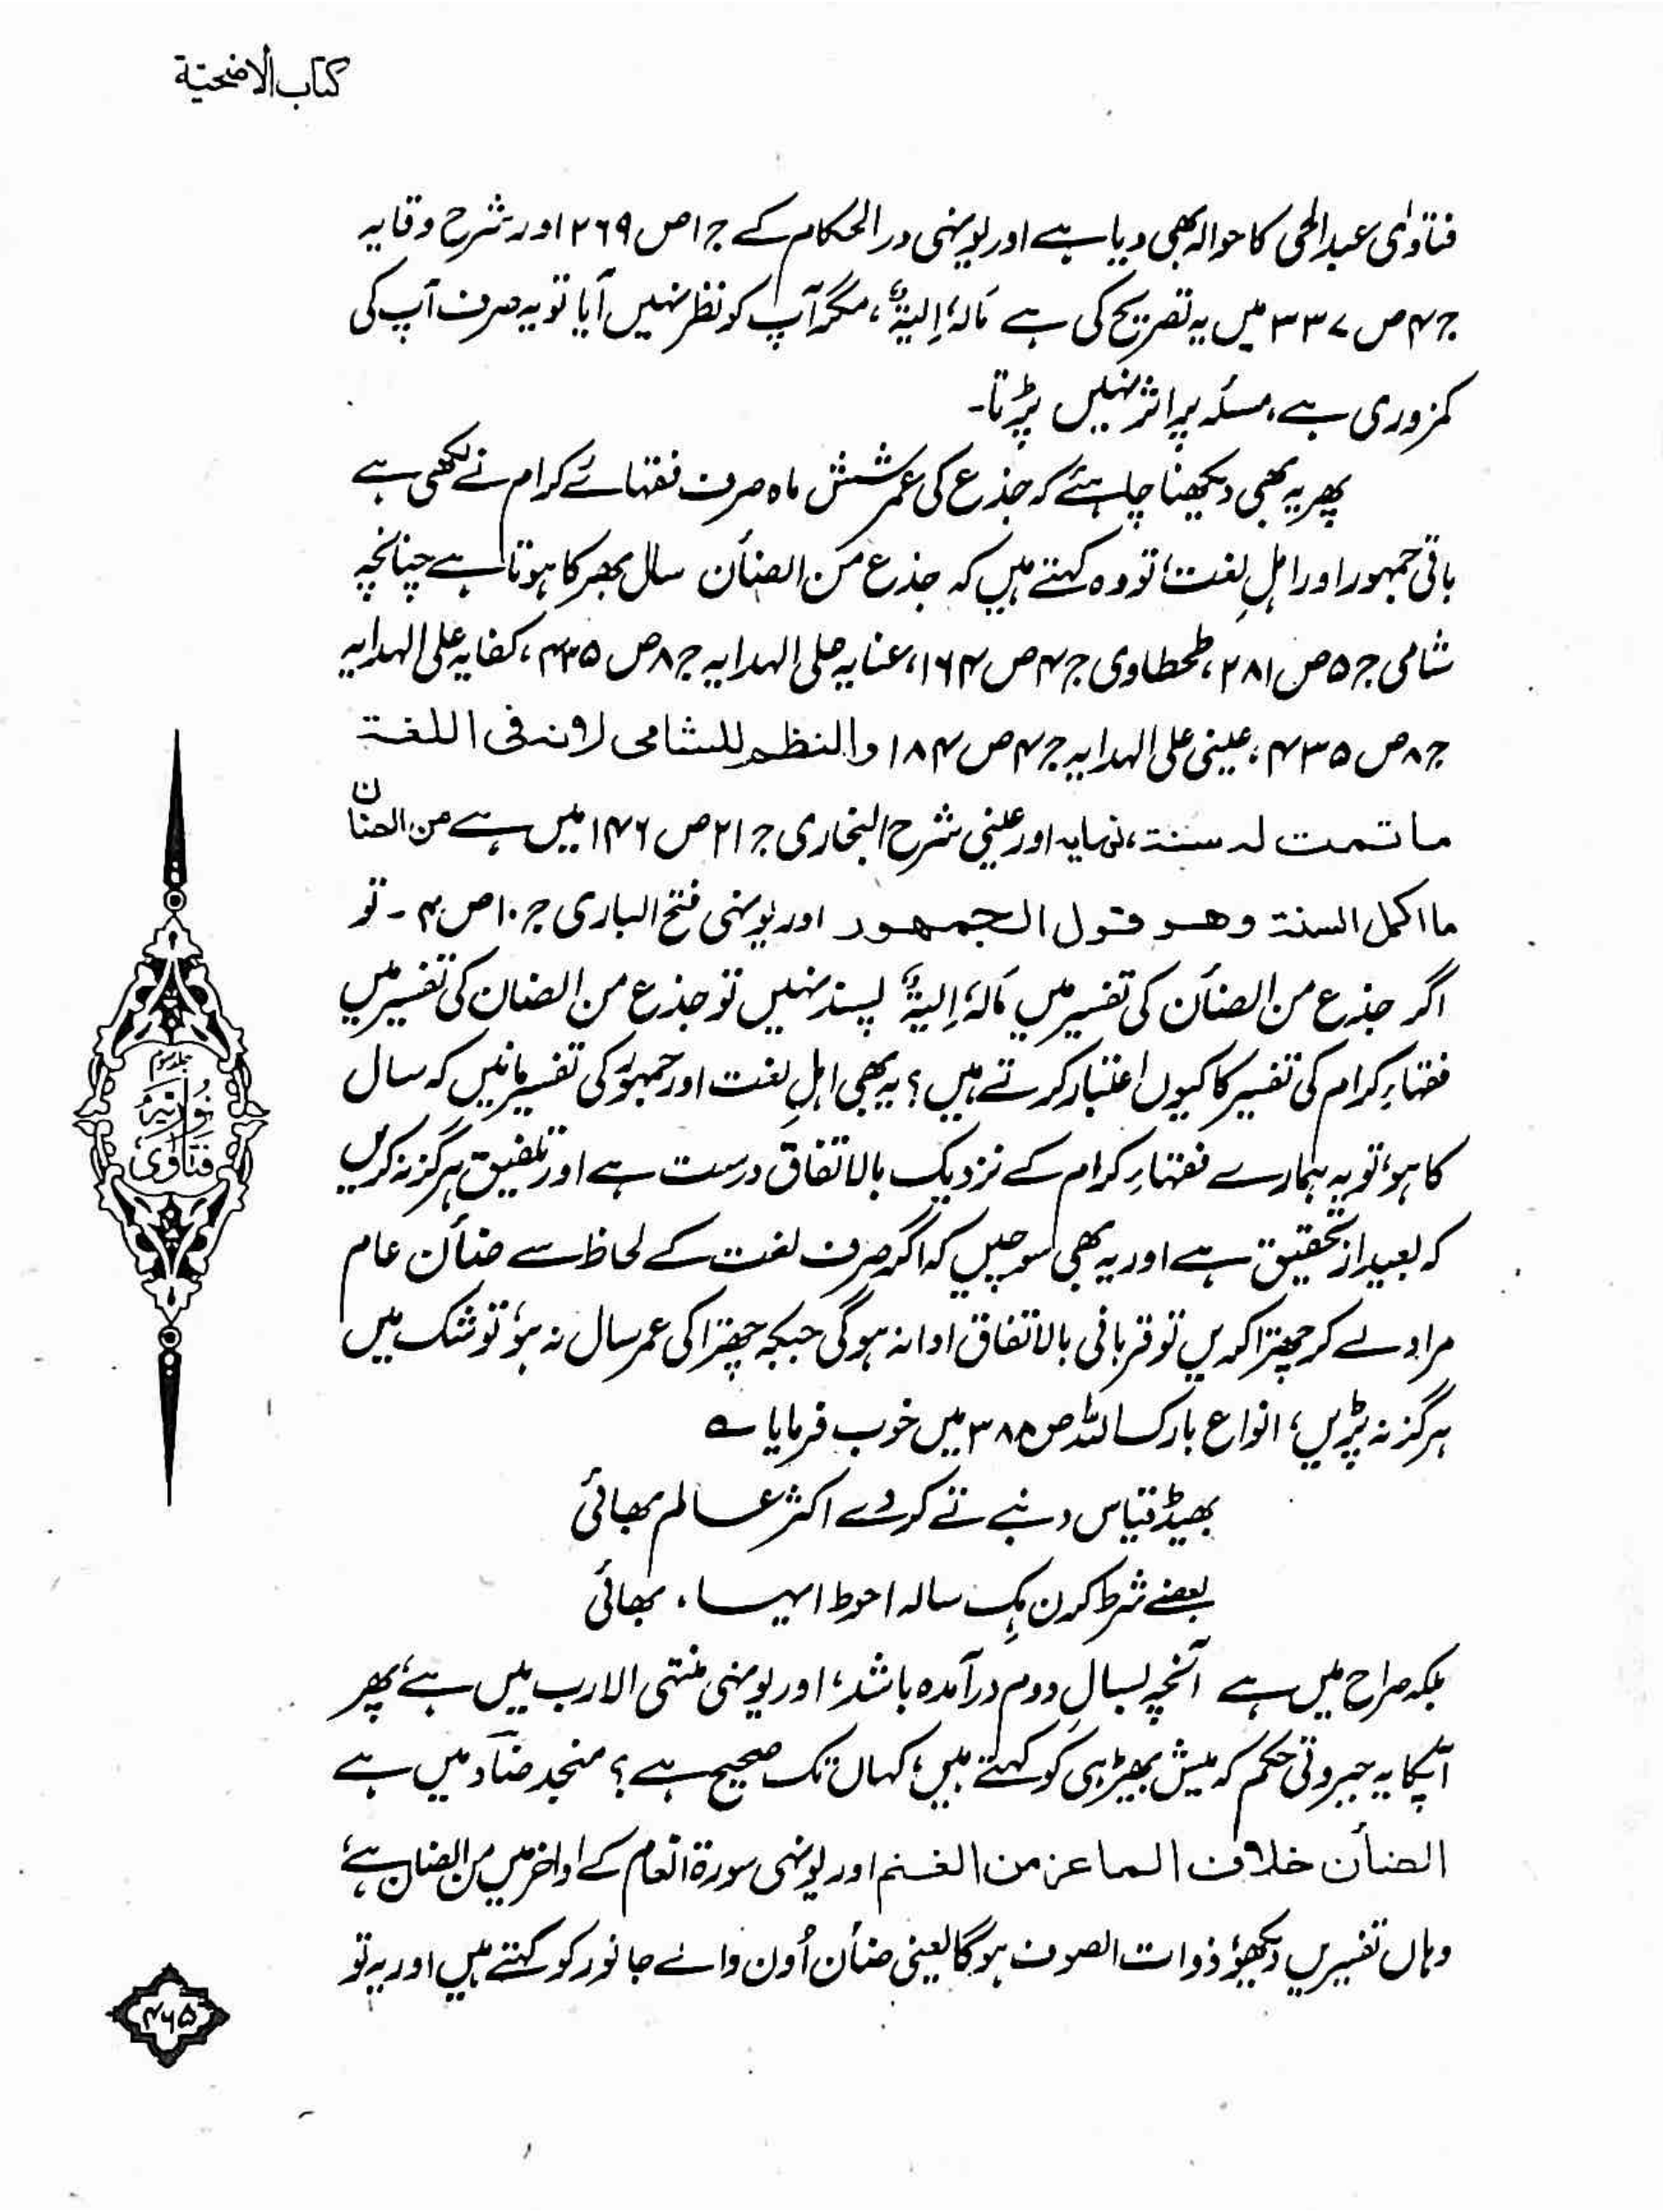 کتاب الاضحیّة
فتاوٰی عبدالحی کا حوالہ بھی دیا ہے اور یونہی درر الحکام کے ج ۱ ص ۲۶۹ اور شرح وقایہ
ج ۴ ص ۳۳۷ میں یہ تصریح کی ہے مَالَہٗ اِلیَۃٌ، مگر آپ کو نظر نہیں آیا تو یہ صرف آپ کی
کمزوری ہے، مسئلہ پر اثر نہیں پڑتا۔
پھر یہ بھی دیکھنا چاہئے کہ جذع کی عمر شش ماہ صرف فقہائے کرام نے لکھی ہے
باقی جمہور اور اہلِ لغت، تو وہ کہتے ہیں کہ جذع من الضأن سال بھر کا ہوتا ہے چنانچہ
شامی ج ۵ ص ۲۸۱، طحطاوی ج ۴ ص ۱۶۴، عنایہ علی الہدایہ ج ۸ ص ۴۳۵، کفایہ علی الہدایہ
ج ۸ ص ۴۳۵، عینی علی الہدایہ ج ۴ ص ۱۸۴ والنظم للشامی لانہ فی اللغۃ
ما تمت لہ سنۃ، نہایہ اور عینی شرح البخاری ج ۲۱ ص ۱۴۶ میں ہے من الضأن
ما اکمل السنۃ وھو قول الجمھور اور یونہی فتح الباری ج ۱۰ ص ۴ ۔ تو
اگر جذع من الضأن کی تفسیر میں مَالَہٗ اِلیَۃٌ پسند نہیں تو جذع من الضان کی تفسیر میں
فقہاءِ کرام کی تفسیر کا کیوں اعتبار کرتے ہیں؟ یہ بھی اہلِ لغت اور جمہور کی تفسیر مانیں کہ سال
کا ہو، تو یہ ہمارے فقہاءِ کرام کے نزدیک بالاتفاق درست ہے اور تلفیق ہرگز نہ کریں
کہ بعید از تحقیق ہے اور یہ بھی سوچیں کہ اگر صرف لغت کے لحاظ سے ضأن عام
مراد لے کر چھترا کریں تو قربانی بالاتفاق ادا نہ ہوگی جبکہ چھترا کی عمر سال نہ ہو، تو شک میں
ہرگز نہ پڑیں، انواع بارک اللہ ص ۳۸۵ میں خوب فرمایا ؎
بھیڈ قیاس دنبے تے کردے اکثر عالم بھائی
بعضے شرط کرن ہک سالہ احوط ایہا، بھائی
بلکہ صراح میں ہے آنچہ بسالِ دوم درآمدہ باشد، اور یونہی منتہی الارب میں ہے، پھر
آپکا یہ جبروتی حکم کہ میش بھیڑ ہی کو کہتے ہیں، کہاں تک صحیح ہے؟ منجد ضآد میں ہے
الضأن خلاف الماعز من الغنم اور یونہی سورۃ انعام کے اواخر میں من الضان ہے،
وہاں تفسیریں دیکھیو، ذوات الصوف ہوگا یعنی ضأن اُون والے جانور کو کہتے ہیں اور یہ تو
جلد سوم
نوریہ
فتاوٰی
۴۶۵